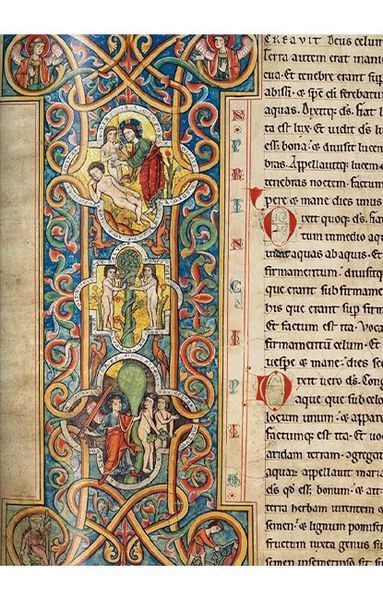 N PRINCIPIO
CREAVIT Deus celum
terra autem erat inani
cua. Et tenebre erant sup
abissi. & sps di ferebatur
aquas. Dixitq; ds. fiat l
ta est lux. Et vidit ds l
esset bona. & divisit lucem
bras. Appellavitq; lucem
tenebras noctem. factum
pere & mane dies unus
ixit quoq; ds. fiat
tum in medio aqu
vidat aquas ab aquis. Et
firmamentum. divisitq;
que erant sub firmam
his que erant sup firm
Et factum est ita. Voca
firmamentum celum. Et
vespe & mane. dies se
ixit vero ds. Con
aque que sub celo
locum unum. & appare
factumq; est ita. Et vo
aridam terram. &gregati
aquarum appellavit maria
ds qd esset bonum. & ait
terra herbam virentem
semen. & lignum pomif
fructum iuxta genus su
semen in semetipso sit su